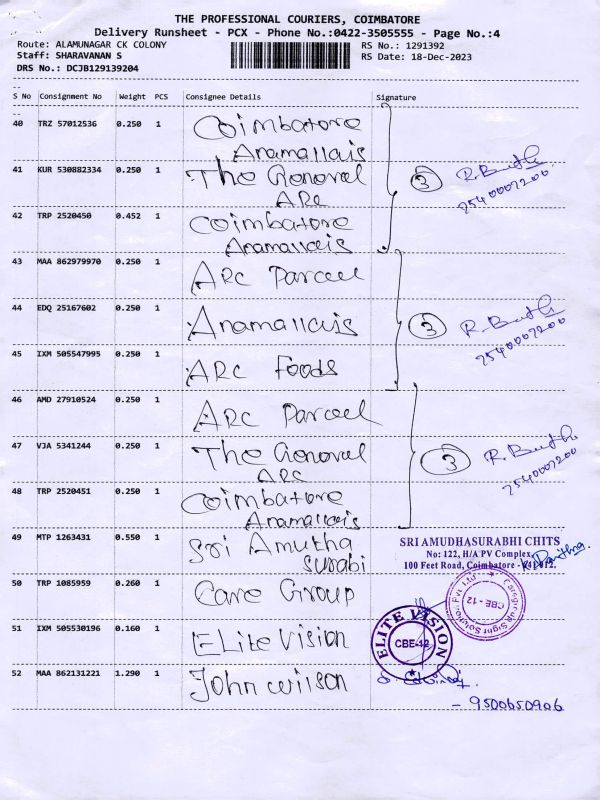 THE PROFESSIONAL COURIERS, COIMBATORE
Delivery Runsheet - PCX - Phone No.:0422-3505555 - Page No.:4
Route: ALAMUNAGAR CK COLONY
RS No.: 1291392
Staff: SHARAVANAN S
RS Date: 18-Dec-2023
DRS No.: DCJB129139204
S No Consignment No Weight PCS Consignee Details Signature
40 TRZ 57012536 0.250 1 Coimbatore
Anamallais
41 KUR 530882334 0.250 1 The General
ARC
3 R.
42 TRP 2520450 0.452 1 Coimbatore
Anamallais
43 MAA 862979970 0.250 1 ARC Parcel
44 EDQ 25167602 0.250 1 Anamallais
3 R.
45 IXM 505547995 0.250 1 ARC Foods
46 AMD 27910524 0.250 1 ARC Parcel
47 VJA 5341244 0.250 1 The General
ARC
3 R.
48 TRP 2520451 0.250 1 Coimbatore
Anamallais
49 MTP 1263431 0.550 1 Sri Amutha
Surabi
SRI AMUDHASURABHI CHITS
No: 122, H/A PV Complex,
100 Feet Road, Coimbatore - 641 012.
50 TRP 1085959 0.260 1 Care Group
CBE - 12
51 IXM 505530196 0.160 1 ELite Vision
ELITE VISION
CBE-12
52 MAA 862131221 1.290 1 John wilson
- 9500650906